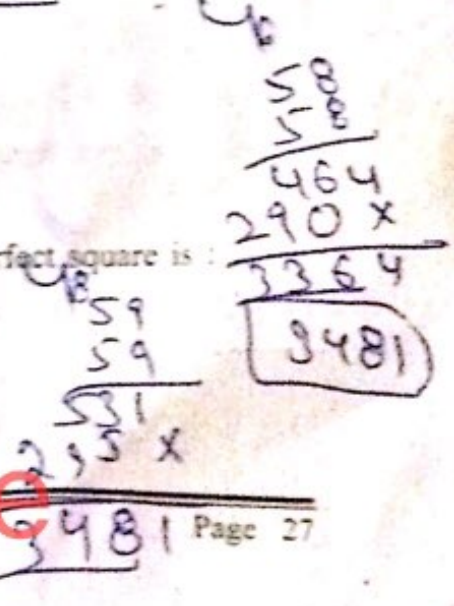 58
58
464
290 x
3364
3481
rfect square is :
59
59
531
295 x
3481
Page 27